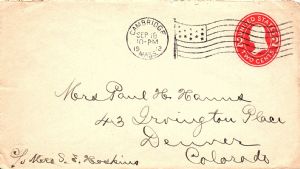 CAMBRIDGE
SEP 18
10-PM
MASS.
UNITED STATES
TWO CENTS
Mrs Paul H. Hanus
43 Irvington Place
Denver
Colorado
c/o Mrs S. E. Hoskins